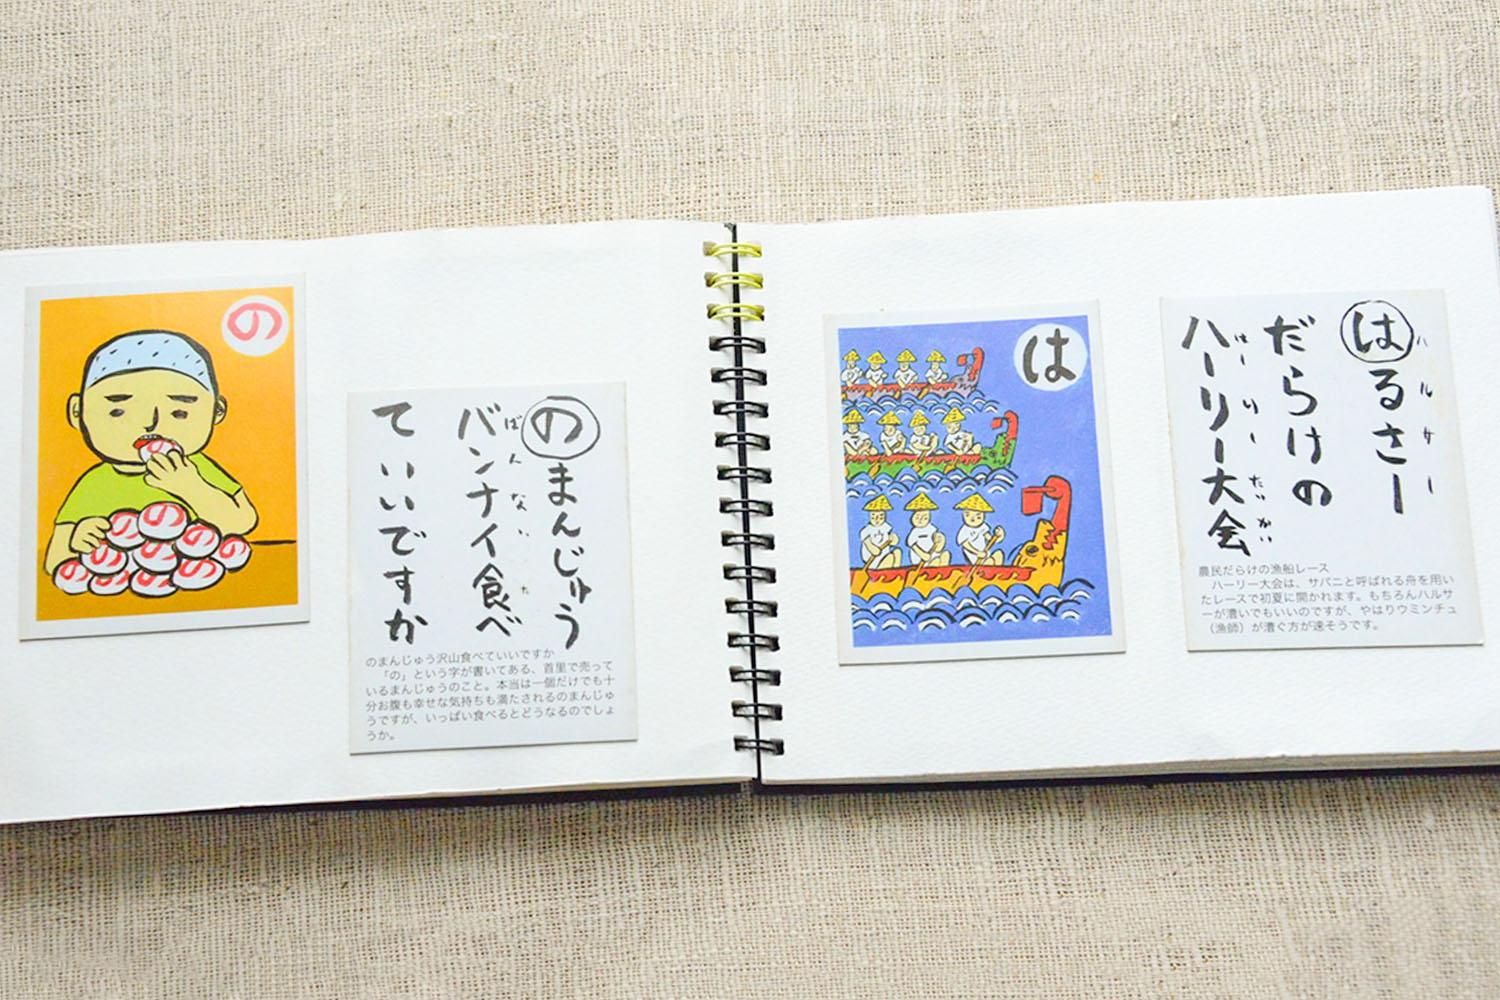 の
のまんじゅう
バンナイ食べ
ばんない た
ていいですか
のまんじゅう沢山食べていいですか
「の」という字が書いてある、首里で売って
いるまんじゅうのこと。本当は一個だけでも十
分お腹も幸せな気持ちも満たされるのまんじゅ
うですが、いっぱい食べるとどうなるのでしょ
うか。
は
はるさー
ハルサー
だらけの
ハーリー大会
はーりーたいかい
農民だらけの漁船レース
ハーリー大会は、サバニと呼ばれる舟を用い
たレースで初夏に開かれます。もちろんハルサ
ーが漕いでもいいのですが、やはりウミンチュ
（漁師）が漕ぐ方が速そうです。